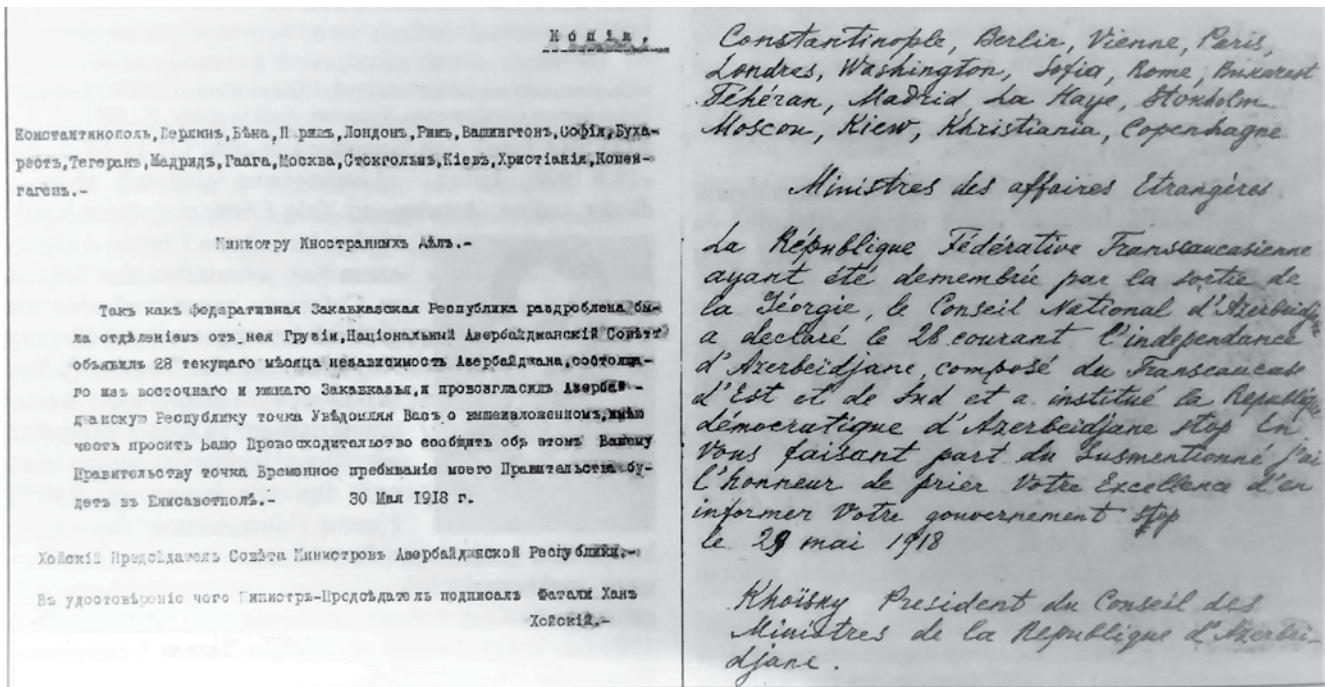 Копія.
Константинополь,Берлинъ,Вѣна,Парижъ,Лондонъ,Римъ,Вашингтонъ,Софія,Буха-
рестъ,Тегеранъ,Мадридъ,Гаага,Москва,Стокгольмъ,Кіевъ,Христіанія,Копен-
гагенъ.-
Министру Иностранныхъ Дѣлъ.-
Такъ какъ федеративная Закавказская Республика раздроблена бы-
ла отдѣленіемъ отъ нея Грузіи,Національный Азербайджанскій Совѣтъ
объявилъ 28 текущаго мѣсяца независимость Азербайджана,состояща-
го изъ восточнаго и южнаго Закавказья,и провозгласилъ Азербай-
джанскую Республику точка Увѣдомляя Васъ о вышеизложенномъ,имѣю
честь просить Ваше Превосходительство сообщить объ этомъ Вашему
Правительству точка Временное пребываніе моего Правительства бу-
детъ въ Елисаветполѣ.- 30 Мая 1918 г.
Хойскій Предсѣдатель Совѣта Министровъ Азербайджанской Республики.-
Въ удостовѣреніе чего Министръ-Предсѣдатель подписалъ Фатали Ханъ
Хойскій.-
Constantinople, Berlin, Vienne, Paris,
Londres, Washington, Sofia, Rome, Bukarest
Téhéran, Madrid La Haye, Stokholm
Moscou, Kiew, Khristiania, Copenhagne
Ministres des affaires Etrangères
La République Fédérative Transcaucasienne
ayant été demembrée par la sortie de
la Géorgie, le Conseil National d'Azerbeidjane
a declaré le 28 courant l'independance
d'Azerbeidjane, composé du Transcaucase
d'Est et de Sud et a institué la Republique
démocratique d'Azerbeidjane stop En
Vous faisant part du Susmentionné j'ai
l'honneur de prier Votre Excellence d'en
informer Votre gouvernement stop
le mai 1918
Khoïsky President du Conseil des
Ministres de la Republique d'Azerbei-
djane.